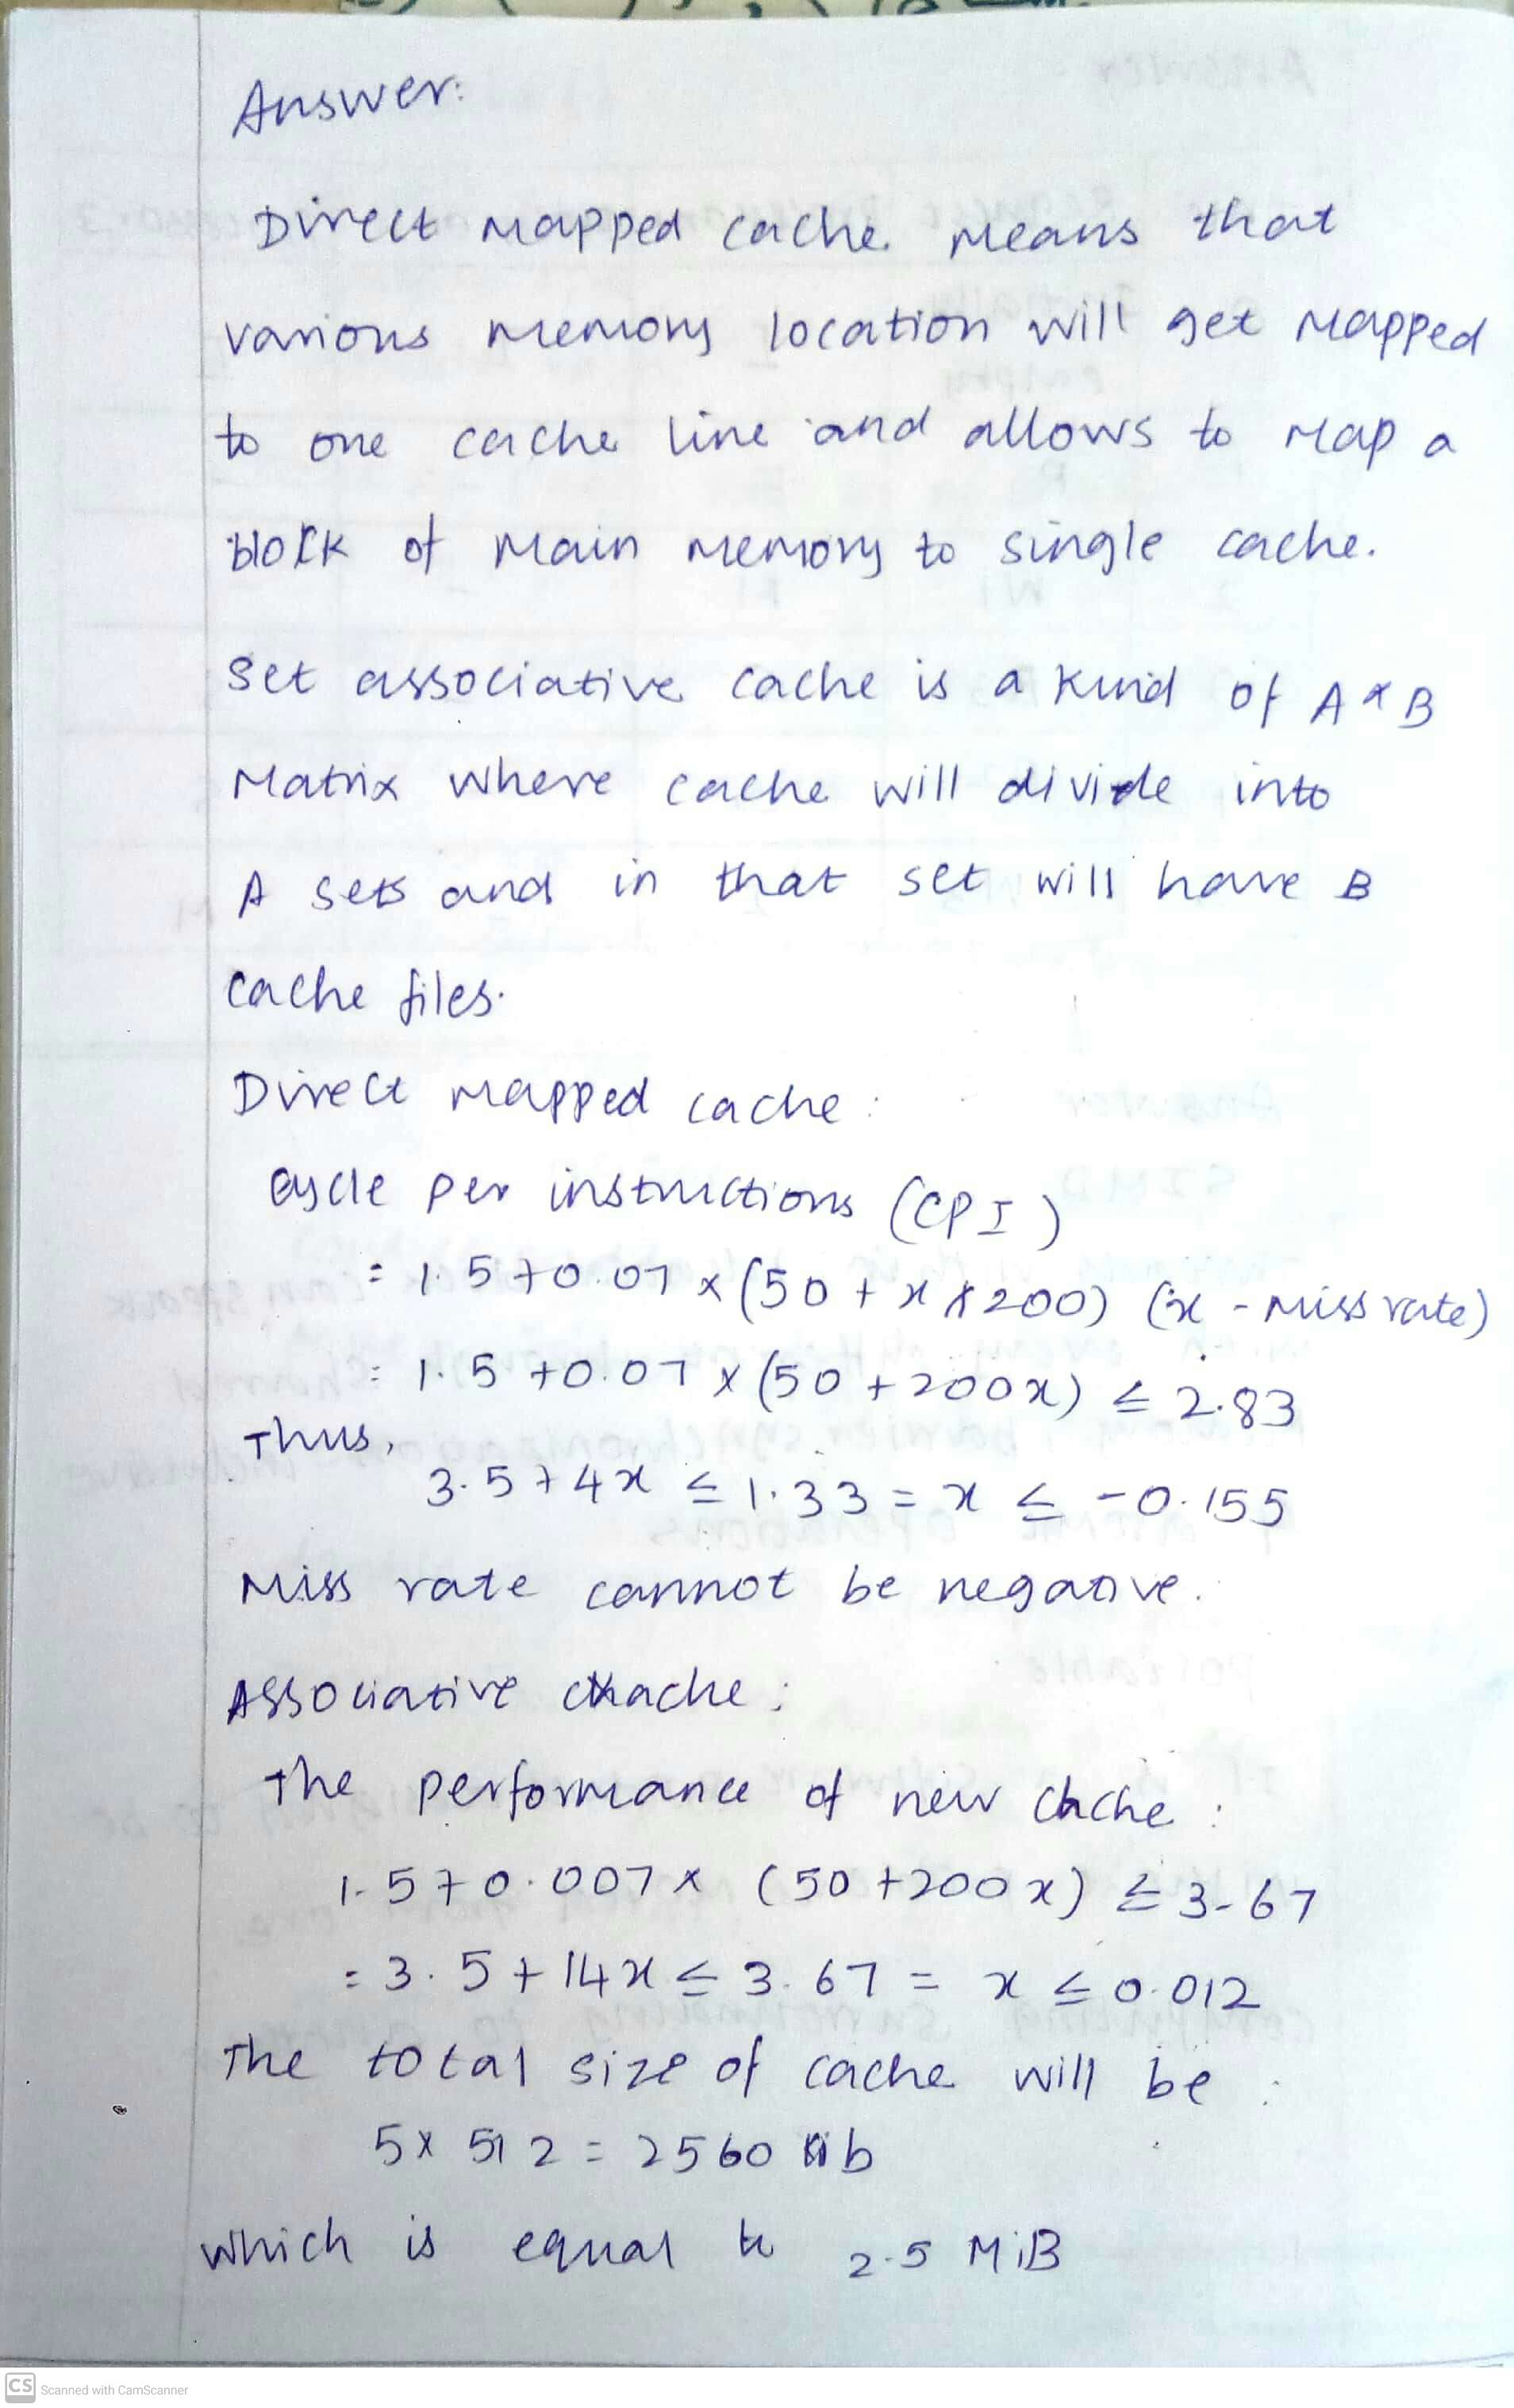 Answer:
Direct Mapped cache Means that
various memory location will get Mapped
to one cache line and allows to Map a
block of Main Memory to single cache.
Set associative cache is a kind of A * B
Matrix where cache will divide into
A sets and in that set will have B
cache files.
Direct Mapped cache :
Cycle per instructions (CPI)
= 1.5 + 0.07 x (50 + x x 200) (x - Miss rate)
= 1.5 + 0.07 x (50 + 200x) ≤ 2.83
Thus,
3.5 + 4x ≤ 1.33 = x ≤ -0.155
Miss rate cannot be negative.
Associative chache :
The performance of new chche :
1.5 + 0.007 x (50 + 200x) ≤ 3.67
= 3.5 + 14x ≤ 3.67 = x ≤ 0.012
The total size of cache will be :
5 x 512 = 2560 Kib
which is equal to 2.5 MiB
CS Scanned with CamScanner